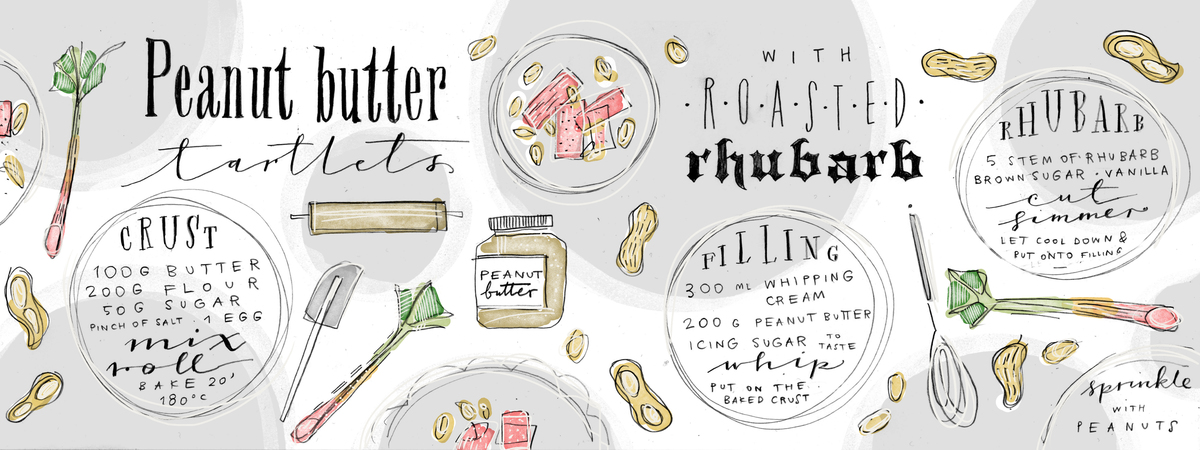 Peanut butter
tartlets
WITH
·R·O·A·S·T·E·D·
rhubarb
CRUST
100G BUTTER
200G FLOUR
50G SUGAR
PINCH OF SALT · 1 EGG
mix
roll
BAKE 20'
180°C
PEANUT
butter
FILLING
300 ML WHIPPING
CREAM
200 G PEANUT BUTTER
ICING SUGAR TO TASTE
whip
PUT ON THE..
BAKED CRUST
RHUBARB
5 STEM OF RHUBARB
BROWN SUGAR · VANILLA
cut
simmer
LET COOL DOWN &
PUT ONTO FILLING
sprinkle
WITH
PEANUTS